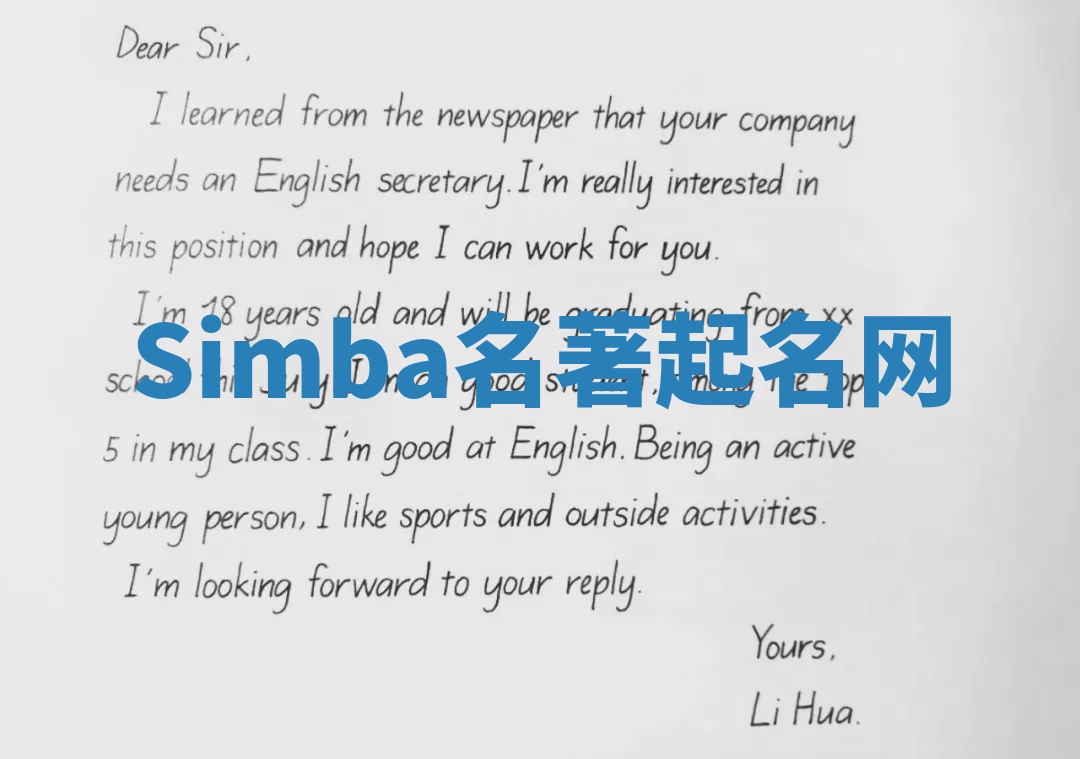 Dear Sir,
I learned from the newspaper that your company
needs an English secretary. I'm really interested in
this position and hope I can work for you.
I'm 18 years old and will be graduating from xx
Simba名著起名网
school this July. I'm a good student, among the top
5 in my class. I'm good at English. Being an active
young person, I like sports and outside activities.
I'm looking forward to your reply.
Yours,
Li Hua.